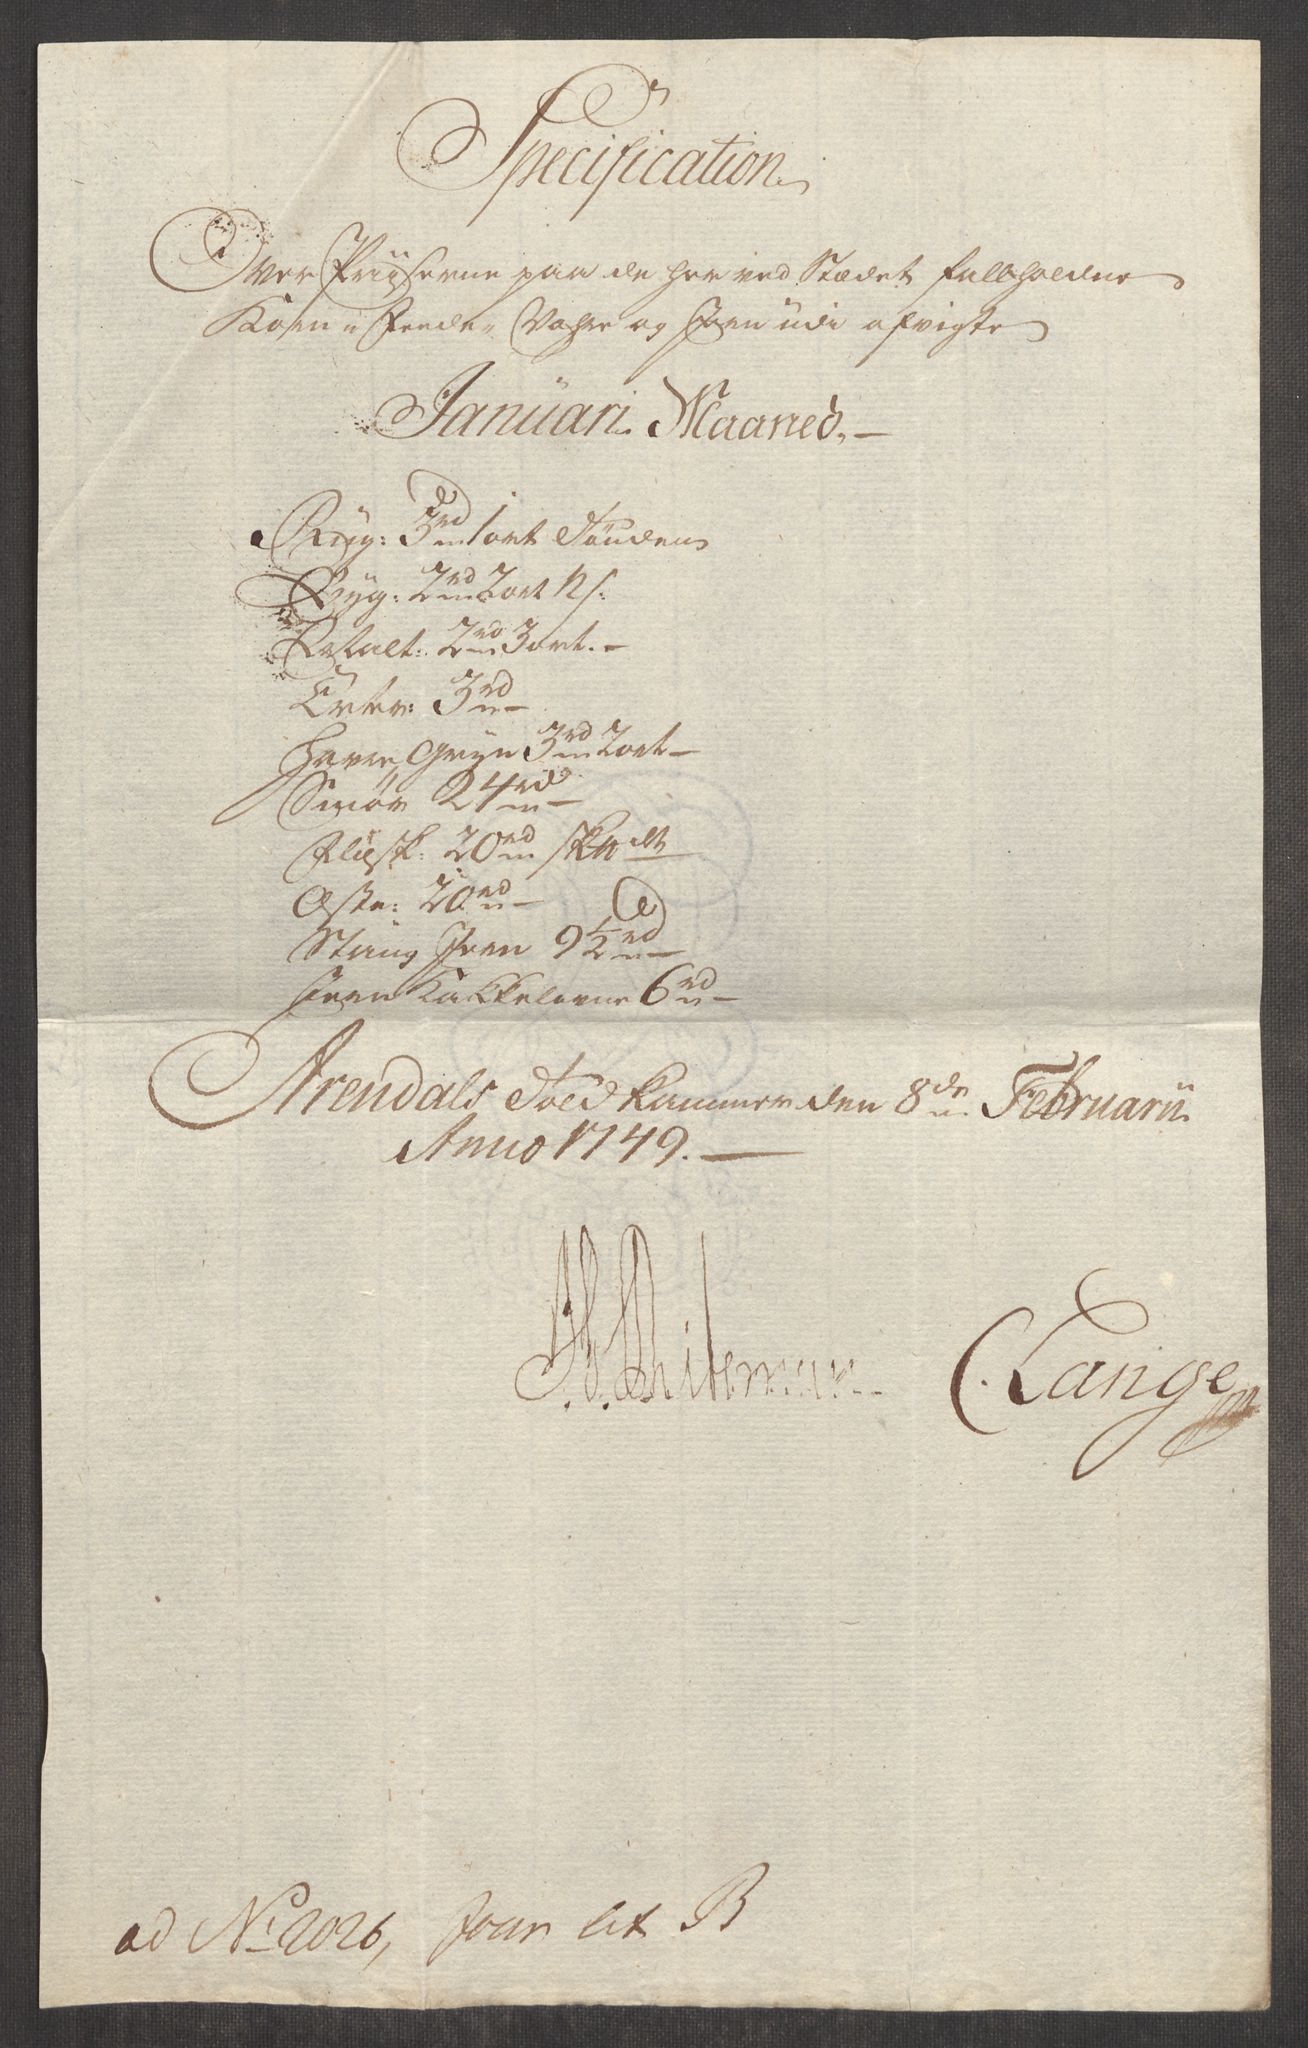 Specification
Over Priiserne paa de her ved Stædet falholdne
Korn- Feede- Vahre og Jern udi afvigte
Januari Maaned.
Rüg: 3 rd 1 ort Tønden
Byg: 2 rd 2 ort
Malt: 2 rd 3 ort
Erter: 3 rd
Havre Gryn 3 rd 2 ort
Smør 24 rd
Flesk: 20 rd
Oste: 20 rd
Stang Jern 9½ rd
Jern Kakkelovne 6 rd
Arendals Told Kammer den 8de Februarii
Anno 1749.
C. Lange
ad No 2026, Jour lit B